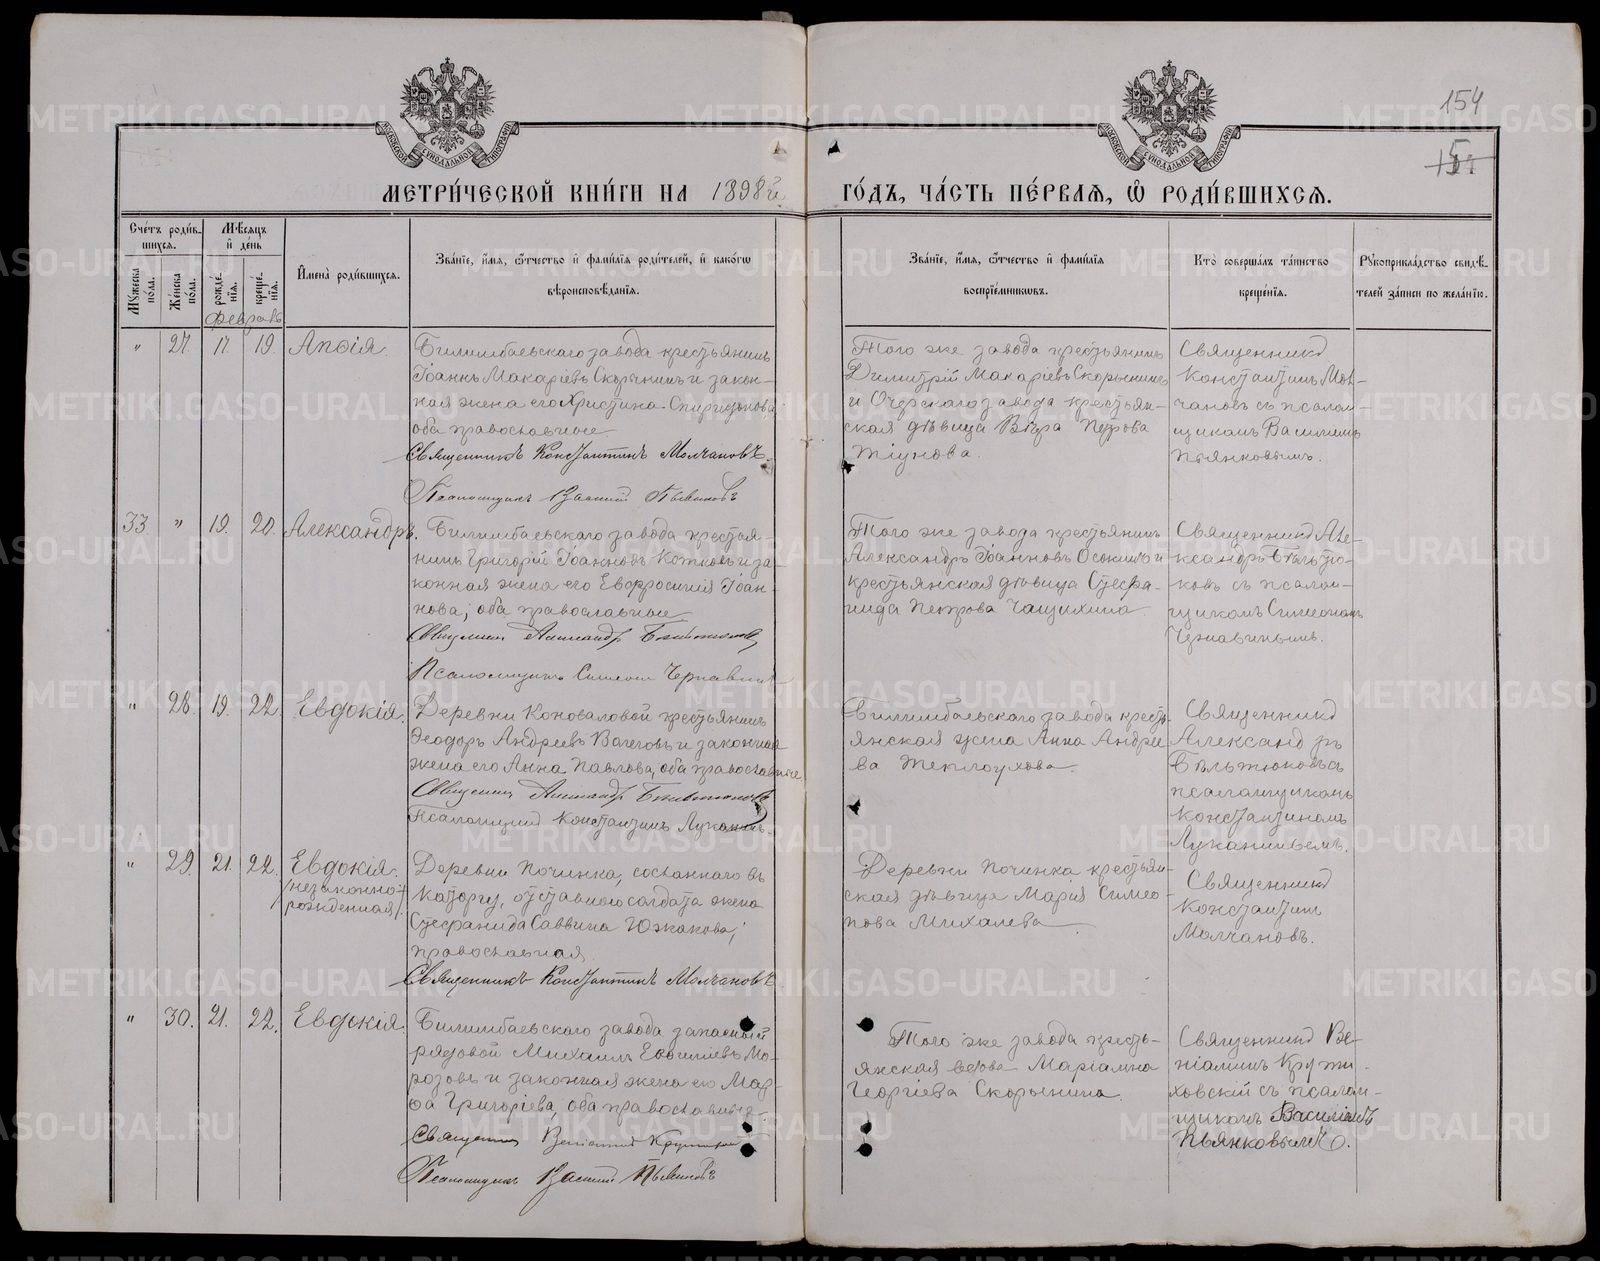 154
МЕТРИ́ЧЕСКОЙ КНИ́ГИ НА 1898й
ГО́ДЪ, ЧА́СТЬ ПЕ́РВАЯ, Ѡ҆ РОДИ́ВШИХСЯ.
МОСКОВСКОЙ СѴНОДАЛЬНОЙ ТИПОГРАФІИ
МОСКОВСКОЙ СѴНОДАЛЬНОЙ ТИПОГРАФІИ
Сче́тъ роди́в-
шихся.
Мꙋ́жеска по́ла.
Же́нска по́ла.
Мѣ́сяцъ и҆ де́нь
рожде́нїя.
креще́нїя.
И҆мена̀ роди́вшихся.
Зва́нїе, и҆́мя, ѻ҆́тчество и҆ фами́лїя роди́телей, и҆ како́гѡ
вѣроисповѣ́данїя.
Зва́нїе, и҆́мя, ѻ҆́тчество и҆ фами́лїя
воспрїе́мникѡвъ.
Кто̀ соверша́лъ та́инство
креще́нїя.
Рꙋкоприкла́дство свидѣ́-
телей за́писи по жела́нїю.
Февраль
" 27. 17. 19. Апфія.
Билимбаевскаго завода крестьянинъ
Іоаннъ Макаріевъ Скорынинъ и закон-
ная жена его Христина Спиридонова,
оба православные
Священникъ Константинъ Молчановъ.
Псаломщикъ Василій Пьянковъ
Того же завода крестьянинъ
Димитрій Макаріевъ Скорынинъ
и Очерскаго завода крестьян-
ская дѣвица Вѣра Петрова
Тіунова.
Священникъ
Константинъ Мол-
чановъ съ псалом-
щикомъ Василіемъ
Пьянковымъ.
33. " 19. 20. Александръ.
Билимбаевскаго завода крестья-
нинъ Григорій Іоанновъ Котковъ и за-
конная жена его Евфросинія Іоан-
нова, оба православные
Священникъ Александръ Бѣльтюковъ,
Псаломщикъ Симеонъ Чернавинъ
Того же завода крестьянинъ
Александръ Іоанновъ Осокинъ и
крестьянская дѣвица Стефа-
нида Петрова Чащихина
Священникъ Але-
ксандръ Бѣльтю-
ковъ съ псалом-
щикомъ Симеономъ
Чернавинымъ.
" 28. 19. 22. Евдокія.
Деревни Коноваловой крестьянинъ
Ѳеодоръ Андреевъ Вагеговъ и законная
жена его Анна Павлова, оба православные
Священникъ Александръ Бѣльтюковъ
Псаломщикъ Константинъ Луканинъ.
Билимбаевскаго завода кресть-
янская жена Анна Андрее-
ва Теплоухова.
Священникъ
Александръ
Бѣльтюковъ съ
псаломщикомъ
Константиномъ
Луканинымъ.
" 29. 21. 22. Евдокія.
/незаконно-
рожденная/.
Деревни Починка, сосланнаго въ
каторгу, отставного солдата жена
Стефанида Саввина Южакова,
православная
Священникъ Константинъ Молчановъ
Деревни Починка крестьян-
ская дѣвица Марія Симео-
нова Михалева
Священникъ
Константинъ
Молчановъ.
" 30. 21. 22. Евдокія.
Билимбаевскаго завода запасный
рядовой Михаилъ Евфиміевъ Мо-
розовъ и законная жена его Мар-
ѳа Григоріева, оба православные
Священникъ Веніаминъ
Псаломщикъ Василій Пьянковъ
Того же завода кресть-
янская вдова Маріамна
Георгіева Скорынина.
Священникъ Ве-
ніаминъ
съ псалом-
щикомъ Василіемъ
Пьянковымъ.
METRIKI.GASO-URAL.RU